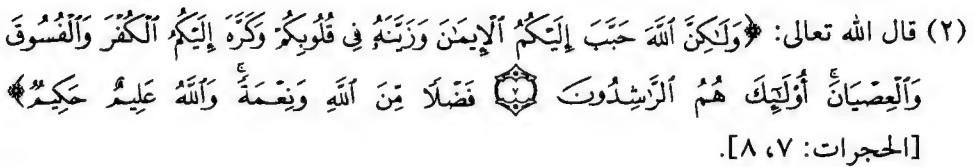 (٢) قال الله تعالى: ﴿وَلَٰكِنَّ ٱللَّهَ حَبَّبَ إِلَيْكُمُ ٱلْإِيمَٰنَ وَزَيَّنَهُۥ فِى قُلُوبِكُمْ وَكَرَّهَ إِلَيْكُمُ ٱلْكُفْرَ وَٱلْفُسُوقَ
وَٱلْعِصْيَانَۚ أُو۟لَٰٓئِكَ هُمُ ٱلرَّٰشِدُونَ ۝٧ فَضْلًا مِّنَ ٱللَّهِ وَنِعْمَةًۚ وَٱللَّهُ عَلِيمٌ حَكِيمٌ﴾
[الحجرات: ٧، ٨].